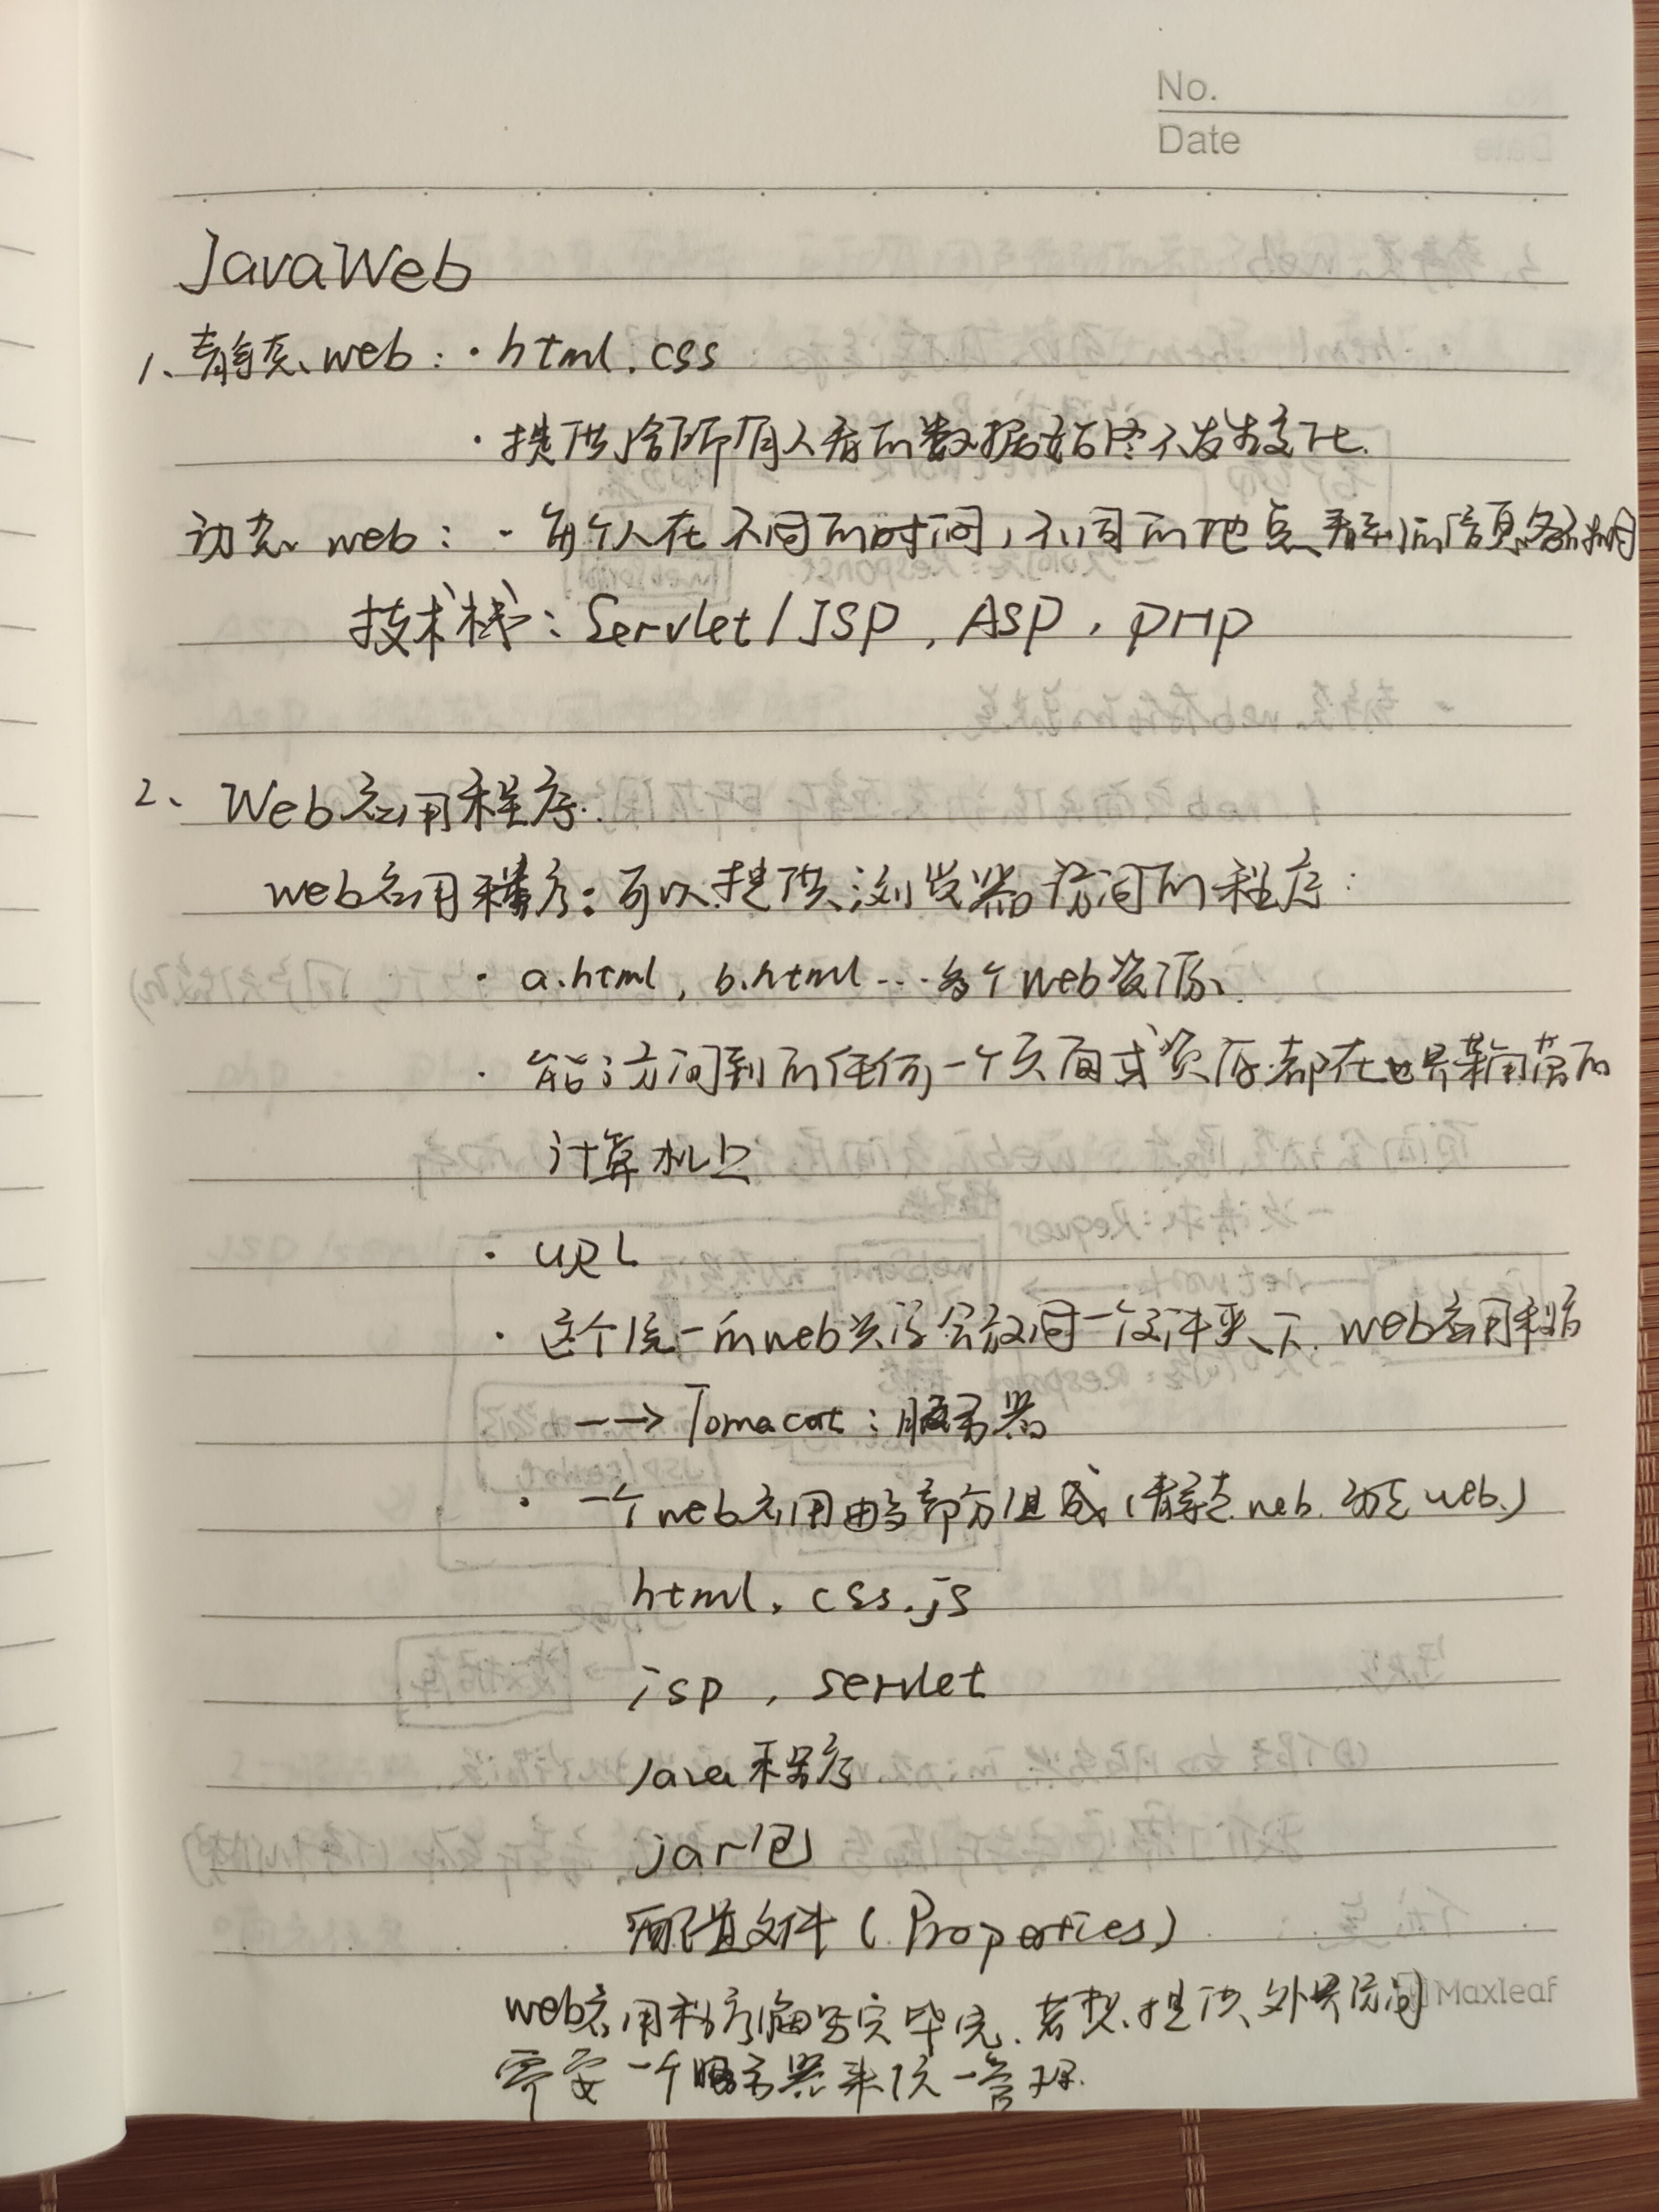 No.
Date
JavaWeb
1、静态web：·html.css
·提供给所有人看的数据始终不发生变化.
动态web：·每个人在不同的时间，不同的地点看到的信息各不相同
技术栈：Servlet/JSP，ASP，PHP
2、Web应用程序.
web应用程序：可以提供浏览器访问的程序：
·a.html，b.html...多个web资源、
·能访问到的任何一个页面或资源都在世界某角落的
计算机上
·URL
·这个统一的web资源会放同一个文件夹下.web应用程序
--→Tomacat：服务器
·一个web应用由多部分组成（静态web.动态web.）
html，css.js
jsp，servlet
Java程序
jar包
配置文件（Properties）
web应用程序编写完毕完.若想.提供外界访问
需要一个服务器来统一管理.
Maxleaf